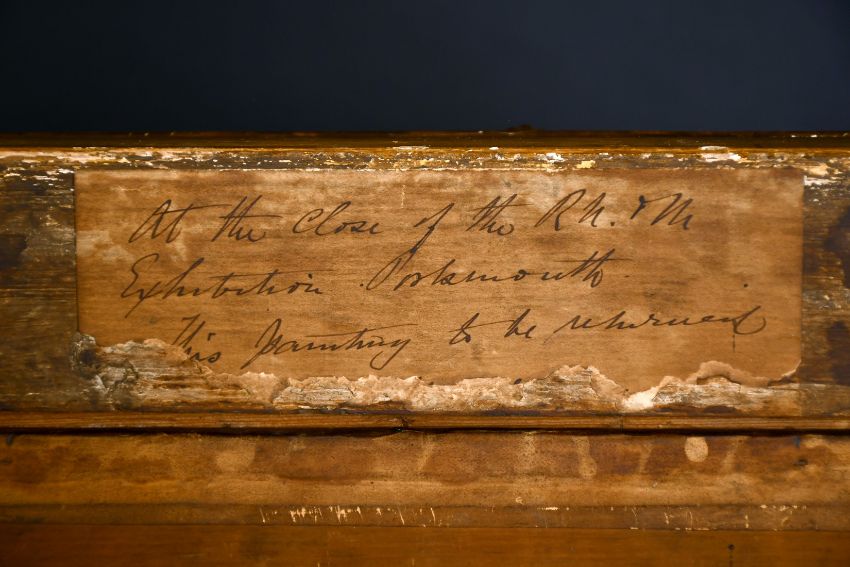 At the Close of the R.N. & M
Exhibition Portsmouth
This painting to be returned